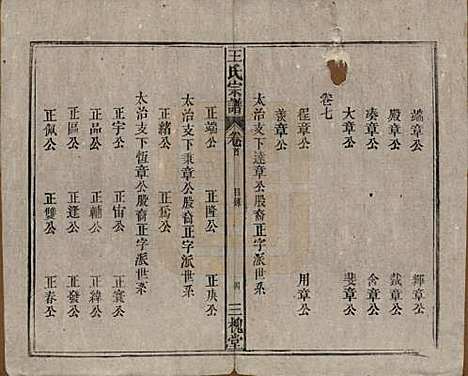 端章公 輝章公
殿章公 戴章公
奏章公 含章公
大章公 斐章公
卷七
程章公 用章公
羨章公
太治支下達章公股裔正字派世系
正端公 正隆公 正庚公
正緒公 正篤公
太治支下秉章公股裔正字派世系
太治支下恆章公股裔正字派世系
正宇公 正宙公 正寰公
正品公 正輔公 正緯公
正區公 正逢公 正發公
正佩公 正雙公 正春公
王氏宗譜
卷首
目錄
三槐堂